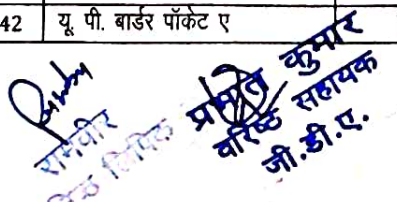 42 यू. पी. बार्डर पॉकेट ए
रामवीर
लिपिक
प्रभात कुमार
वरिष्ठ सहायक
जी.डी.ए.